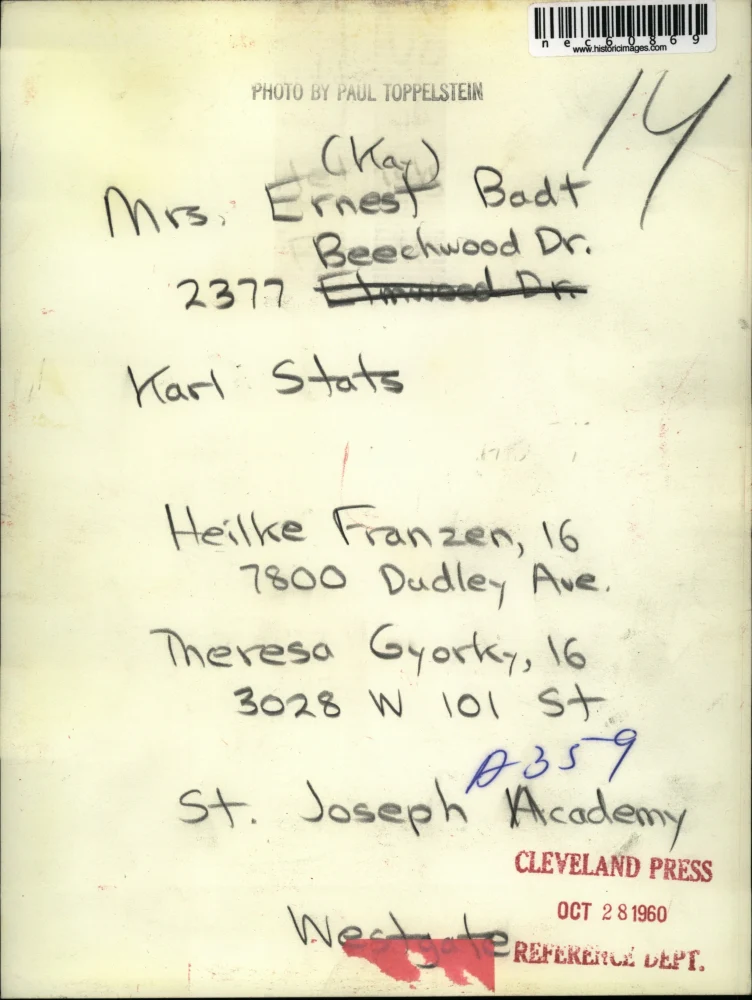 nec60869
www.historicimages.com
PHOTO BY PAUL TOPPELSTEIN
14
(Kay)
Mrs. Ernest Badt
Beechwood Dr.
2377 Elmwood Dr.
Karl Stats
Heilke Franzen, 16
7800 Dudley Ave.
Theresa Gyorky, 16
3028 W 101 St
A359
St. Joseph Academy
CLEVELAND PRESS
OCT 28 1960
Westgate
REFERENCE DEPT.